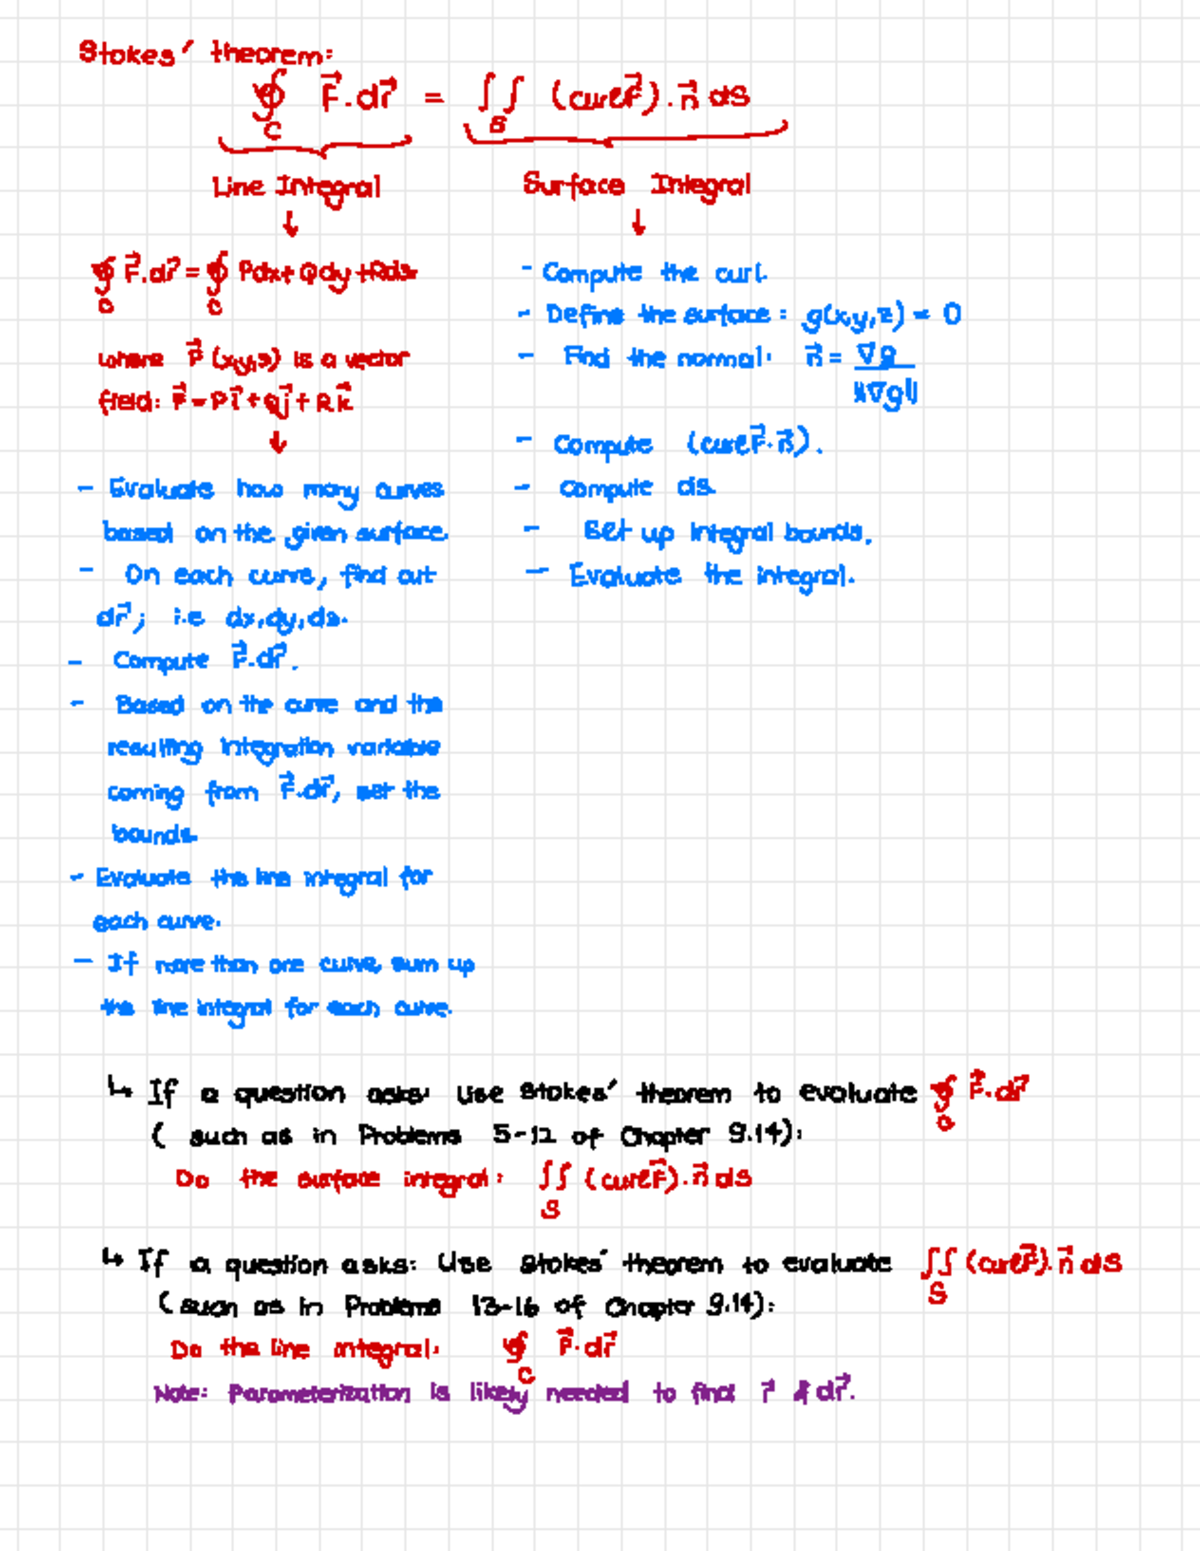 Stokes' theorem:
∮_C F⃗.dr⃗ = ∬_S (curlF⃗).n⃗ ds
Line Integral
Surface Integral
↓
↓
∮_C F⃗.dr⃗ = ∮_C Pdx+Qdy+Rdz
where F⃗(x,y,z) is a vector
field: F⃗=Pi⃗+Qj⃗+Rk⃗
↓
- Evaluate how many curves
based on the given surface.
- On each curve, find out
dr⃗; i.e dx,dy,dz.
- Compute F⃗.dr⃗.
- Based on the curve and the
resulting integration variable
coming from F⃗.dr⃗, set the
bounds.
- Evaluate the line integral for
each curve.
- If more than one curve, sum up
the line integral for each curve.
- Compute the curl.
- Define the surface: g(x,y,z) = 0
- Find the normal: n⃗ = ∇g / ||∇g||
- Compute (curlF⃗.n⃗).
- Compute ds.
- Set up integral bounds.
- Evaluate the integral.
↳ If a question asks: Use Stokes' theorem to evaluate ∮_C F⃗.dr⃗
( such as in Problems 5-12 of Chapter 9.14):
Do the surface integral: ∬_S (curlF⃗).n⃗ ds
↳ If a question asks: Use Stokes' theorem to evaluate ∬_S (curlF⃗).n⃗ ds
(such as in Problems 13-16 of Chapter 9.14):
Do the line integral: ∮_C F⃗.dr⃗
Note: Parameterization is likely needed to find r⃗ & dr⃗.